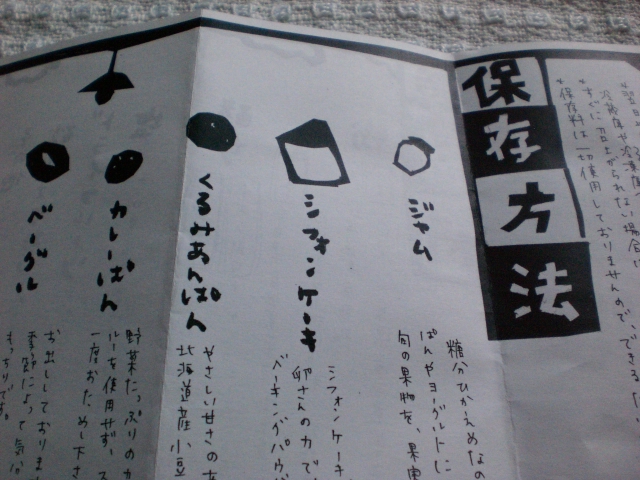 保存方法
*保存料は一切使用しておりませんので、できるだ
*すぐに召し上がられない場合
ジャム
糖分ひかえめなの
ぱんやヨーグルトに
旬の果物を、果実
シフォンケーキ
シフォンケーキ
卵さんの力で
ベーキングパウ
くるみあんぱん
やさしい甘さの
北海道産小豆
カレーぱん
野菜たっぷりのカ
ルーを使用せず、ス
一度おためし下さ
ベーグル
お出ししておりま
季節によって気
もっちりです。